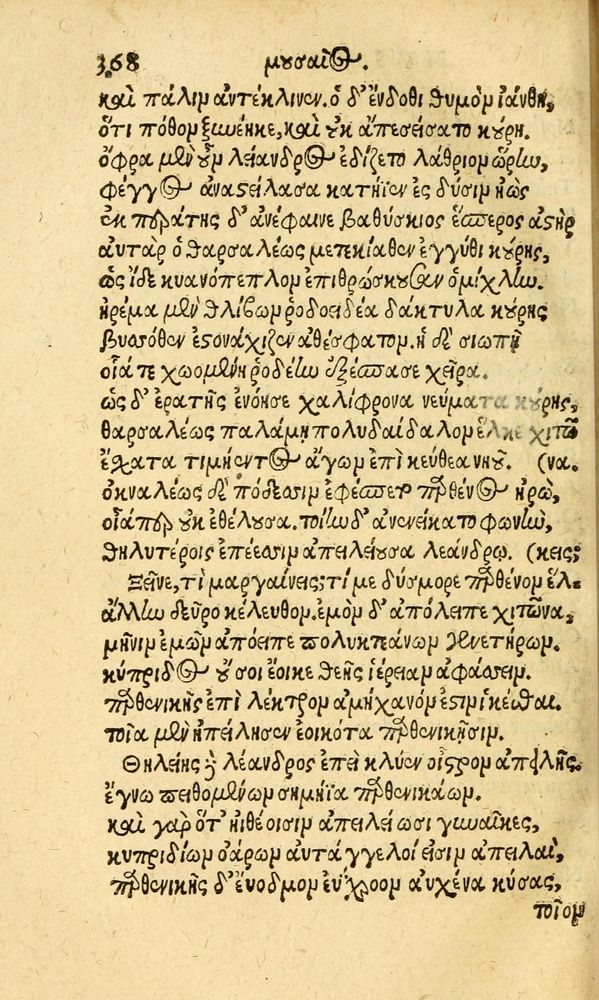 368 μουσαῖος.
καὶ πάλιν ἀντέκλινεν. ὁ δ' ἔνδοθι θυμὸν ἰάνθη,
ὅτι πόθον ξυνέηκε, καὶ οὐκ ἀπεσείσατο κούρη.
ὄφρα μὲν οὖν λείανδρος ἐδίζετο λάθριον ὥρην,
φέγγος ἀναστείλασα κατήϊεν ἐς δύσιν ἠώς
ἐκ περάτης δ' ἀνέφαινε βαθύσκιος ἕσπερος ἀστήρ
αὐτὰρ ὁ θαρσαλέως μετεκίαθεν ἐγγύθι κούρης,
ὡς ἴδε κυανόπεπλον ἐπιθρώσκουσαν ὁμίχλην.
ἠρέμα μὲν θλίβων ῥοδοειδέα δάκτυλα κούρης
βυσσόθεν ἐστονάχιζεν ἀθέσφατον. ἡ δὲ σιωπῇ
οἷά τε χωομένη ῥοδέην ἐξέσπασε χεῖρα.
ὡς δ' ἐρατῆς ἐνόησε χαλίφρονα νεύματα κούρης,
θαρσαλέως παλάμη πολυδαίδαλον ἕλκε χιτῶ
ἔσχατα τιμήεντος ἄγων ἐπὶ κεύθεα νηοῦ. (να.
ὀκναλέως δὲ πόδεσσιν ἐφέσπετο παρθένος ἡρώ,
οἷάπερ οὐκ ἐθέλουσα. τοίην δ' ἀνενείκατο φωνήν,
θηλυτέροις ἐπέεσσιν ἀπειλείουσα λεάνδρῳ. (κεις;
Ξεῖνε, τί μαργαίνεις; τί με δύσμορε παρθένον ἕλ-
ἄλλην δεῦρο κέλευθον. ἐμὸν δ' ἀπόλειπε χιτῶνα,
μῆνιν ἐμῶν ἀπόειπε πολυκτεάνων γενετήρων.
κύπριδος οὔ σοι ἔοικε θεῆς ἱέρειαν ἀφάσσειν.
παρθενικῆς ἐπὶ λέκτρον ἀμήχανόν ἐστιν ἱκέσθαι.
τοῖα μὲν ἠπείλησεν ἐοικότα παρθενικῇσιν.
Θηλείης δὲ λέανδρος ἐπεὶ κλύεν οἶστρον ἀπειλῆς.
ἔγνω πειθομένων σημήϊα παρθενικάων.
καὶ γὰρ ὅτ' ἠϊθέοισιν ἀπειλείωσι γυναῖκες,
κυπριδίων ὀάρων αὐτάγγελοί εἰσιν ἀπειλαί,
παρθενικῆς δ' ἔυοδμον ἐύχροον αὐχένα κύσας,
τοῖον